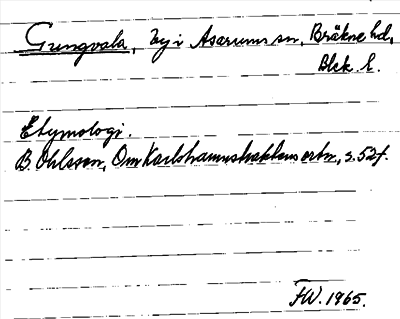 Gungvala, by i Asarums sn, Bräkne hd,
Blek. l.
Etymologi.
B. Ohlsson, Om Karlshamnstraktens ortn., s. 52f.
FW. 1965.